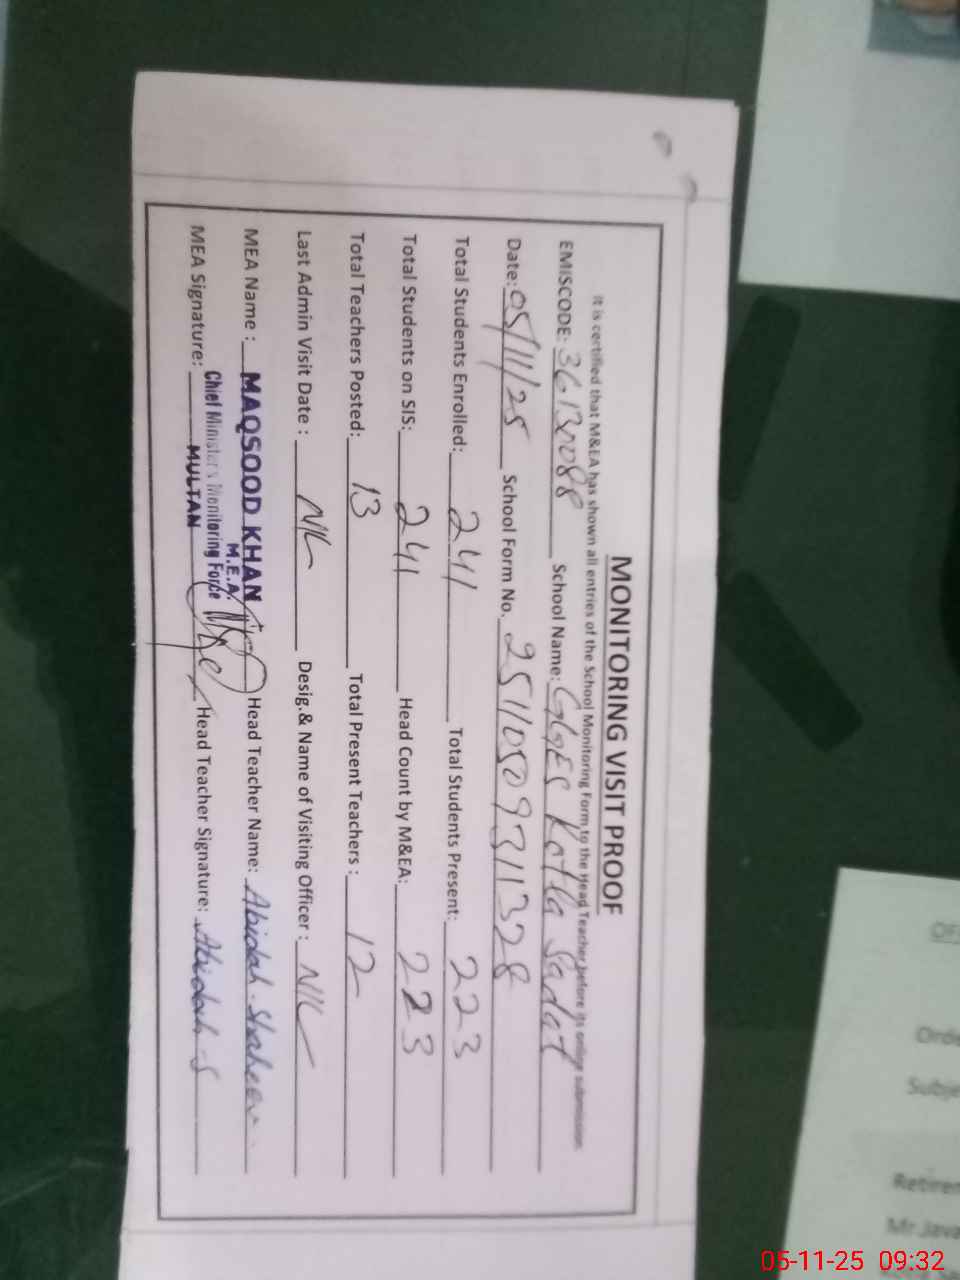 MONITORING VISIT PROOF
It is certified that M&EA has shown all entries of the School Monitoring Form to the Head Teacher before its online submission.
EMISCODE: 36130088 School Name: GGES Kotla Sadat
Date: 05/11/25 School Form No. 2511050931328
Total Students Enrolled: 241 Total Students Present: 223
Total Students on SIS: 241 Head Count by M&EA: 223
Total Teachers Posted: 13 Total Present Teachers : 12
Last Admin Visit Date : NIL Desig.& Name of Visiting Officer : NIL
MEA Name : MAQSOOD KHAN Head Teacher Name: Abidah Shaheen
M.E.A
Chief Minister's Monitoring Force
MEA Signature: MULTAN Head Teacher Signature: Abidah - S
Subje
Retirem
Mr Java
05-11-25 09:32